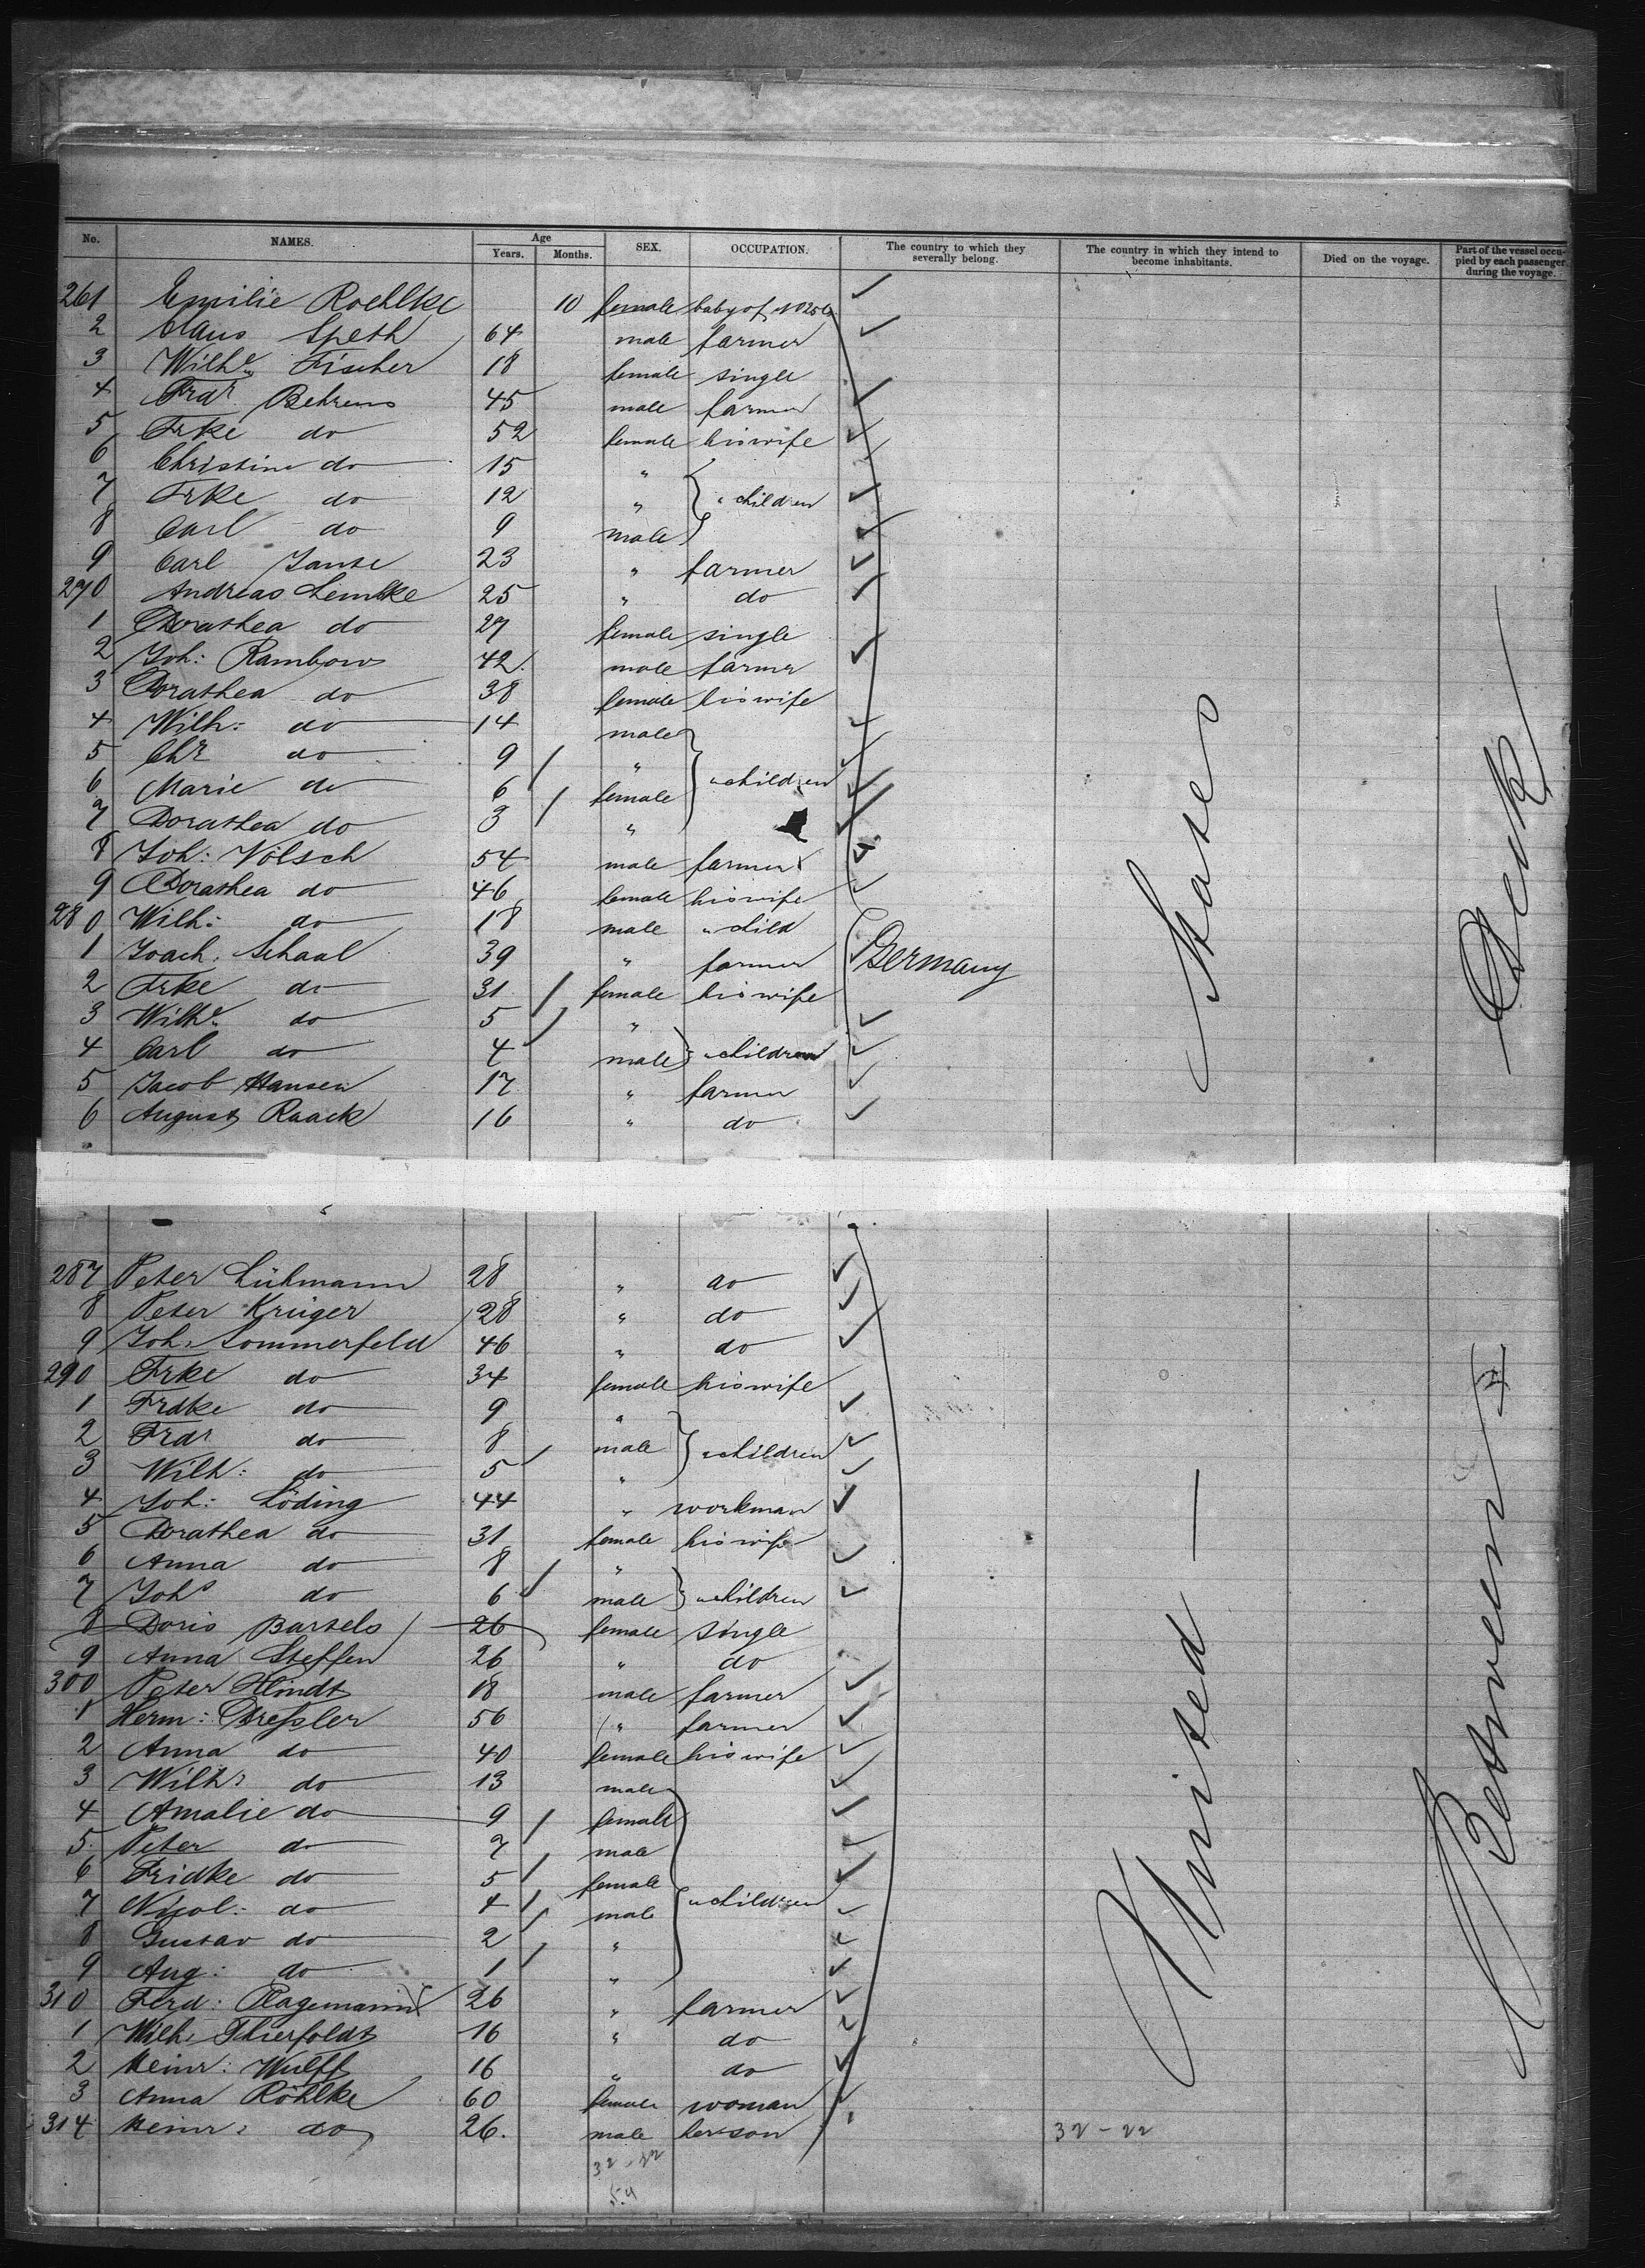 No. NAMES. Age Years. Months. SEX. OCCUPATION. The country to which they severally belong. The country in which they intend to become inhabitants. Died on the voyage. Part of the vessel occupied by each passenger during the voyage.
261 Emilie Roehlke 10 female baby of No
2 Claus Speth 64 male farmer
3 Wilhe Fischer 18 female single
4 Frdr Behrens 45 male farmer
5 Frke do 52 female his wife
6 Christine do 15 "
7 Frke do 12 " " children
8 Carl do 9 male
9 Carl 23 " farmer
270 Andreas Lembke 25 " do
1 Dorathea do 27 female single
2 Joh: Rambow 42 male farmer
3 Dorathea do 38 female his wife
4 Wilh: do 14 male
5 Chr do 9 "
6 Marie do 6 female " children
7 Dorathea do 3 "
8 Joh: Völsch 54 male farmer
9 Dorathea do 46 female his wife
280 Wilh: do 18 male " child
1 Joach: Schaal 39 " farmer Germany
2 Frke do 31 female his wife
3 Wilhe do 5 "
4 Carl do 4 male " children
5 Jacob Hansen 17 " farmer
6 August Raack 16 " do
287 Peter Lühmann 28 " do
8 Peter Krüger 28 " do
9 Joh: Sommerfeld 46 " do
290 Frke do 34 female his wife
1 Frdke do 9 "
2 Frdr do 8 male " children
3 Wilh: do 5 "
4 Joh: Löding 44 " workman
5 Dorathea do 31 female his wife
6 Anna do 8 "
7 Johs do 6 male " children
8 Doris Bartels 26 female single
9 Anna Steffen 26 " do
300 Peter Hindt 18 male farmer
1 Herm: Dreßler 56 " farmer
2 Anna do 40 female his wife
3 Wilhr do 13 male
4 Amalie do 9 female
5 Peter do 7 male
6 Fridke do 5 female
7 Nicol: do 4 male " children
8 Gustav do 2 "
9 Aug: do 1 "
310 Ferd: Plagemann 26 " farmer
1 Wilh: Thierfoldt 16 " do
2 Heinr: Wulff 16 " do
3 Anna Röhlke 60 female woman
314 Heinr: do 26. male her son
32-22
32-22
54
United States
Betweens Deck